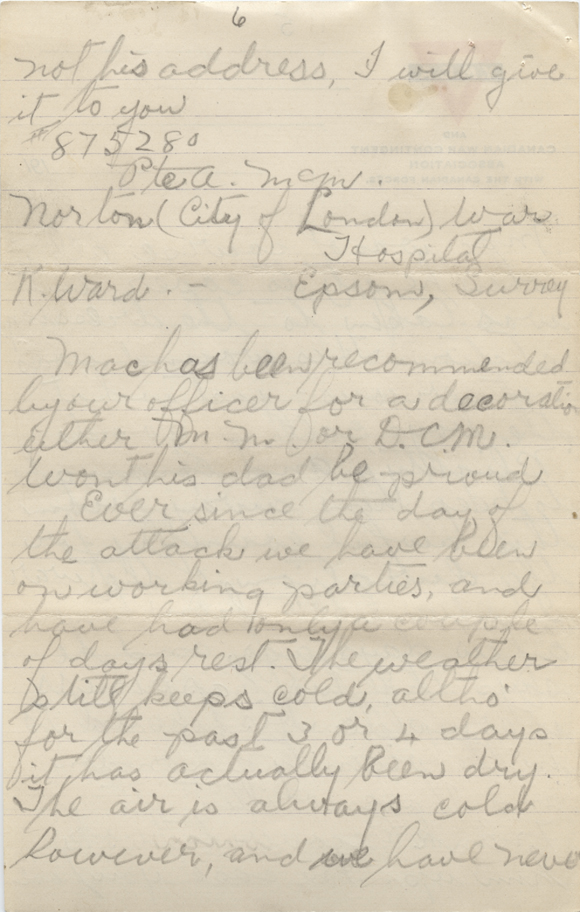 6
not his address, I will give
it to you
# 875280
Pte A. McM.
Norton (City of London) War
Hospital
K. Ward. - Epsom, Surrey
Mac has been recommended
by our officer for a decoration
either M.M. or D.C.M.
wont his dad be proud
Ever since the day of
the attack we have been
on working parties, and
have had only a couple
of days rest. The weather
still keeps cold, altho'
for the past 3 or 4 days
it has actually been dry.
The air is always cold
however, and we have neve
AND
CANADIAN WAR CONTINGENT
ASSOCIATION
WITH THE CANADIAN FORCES